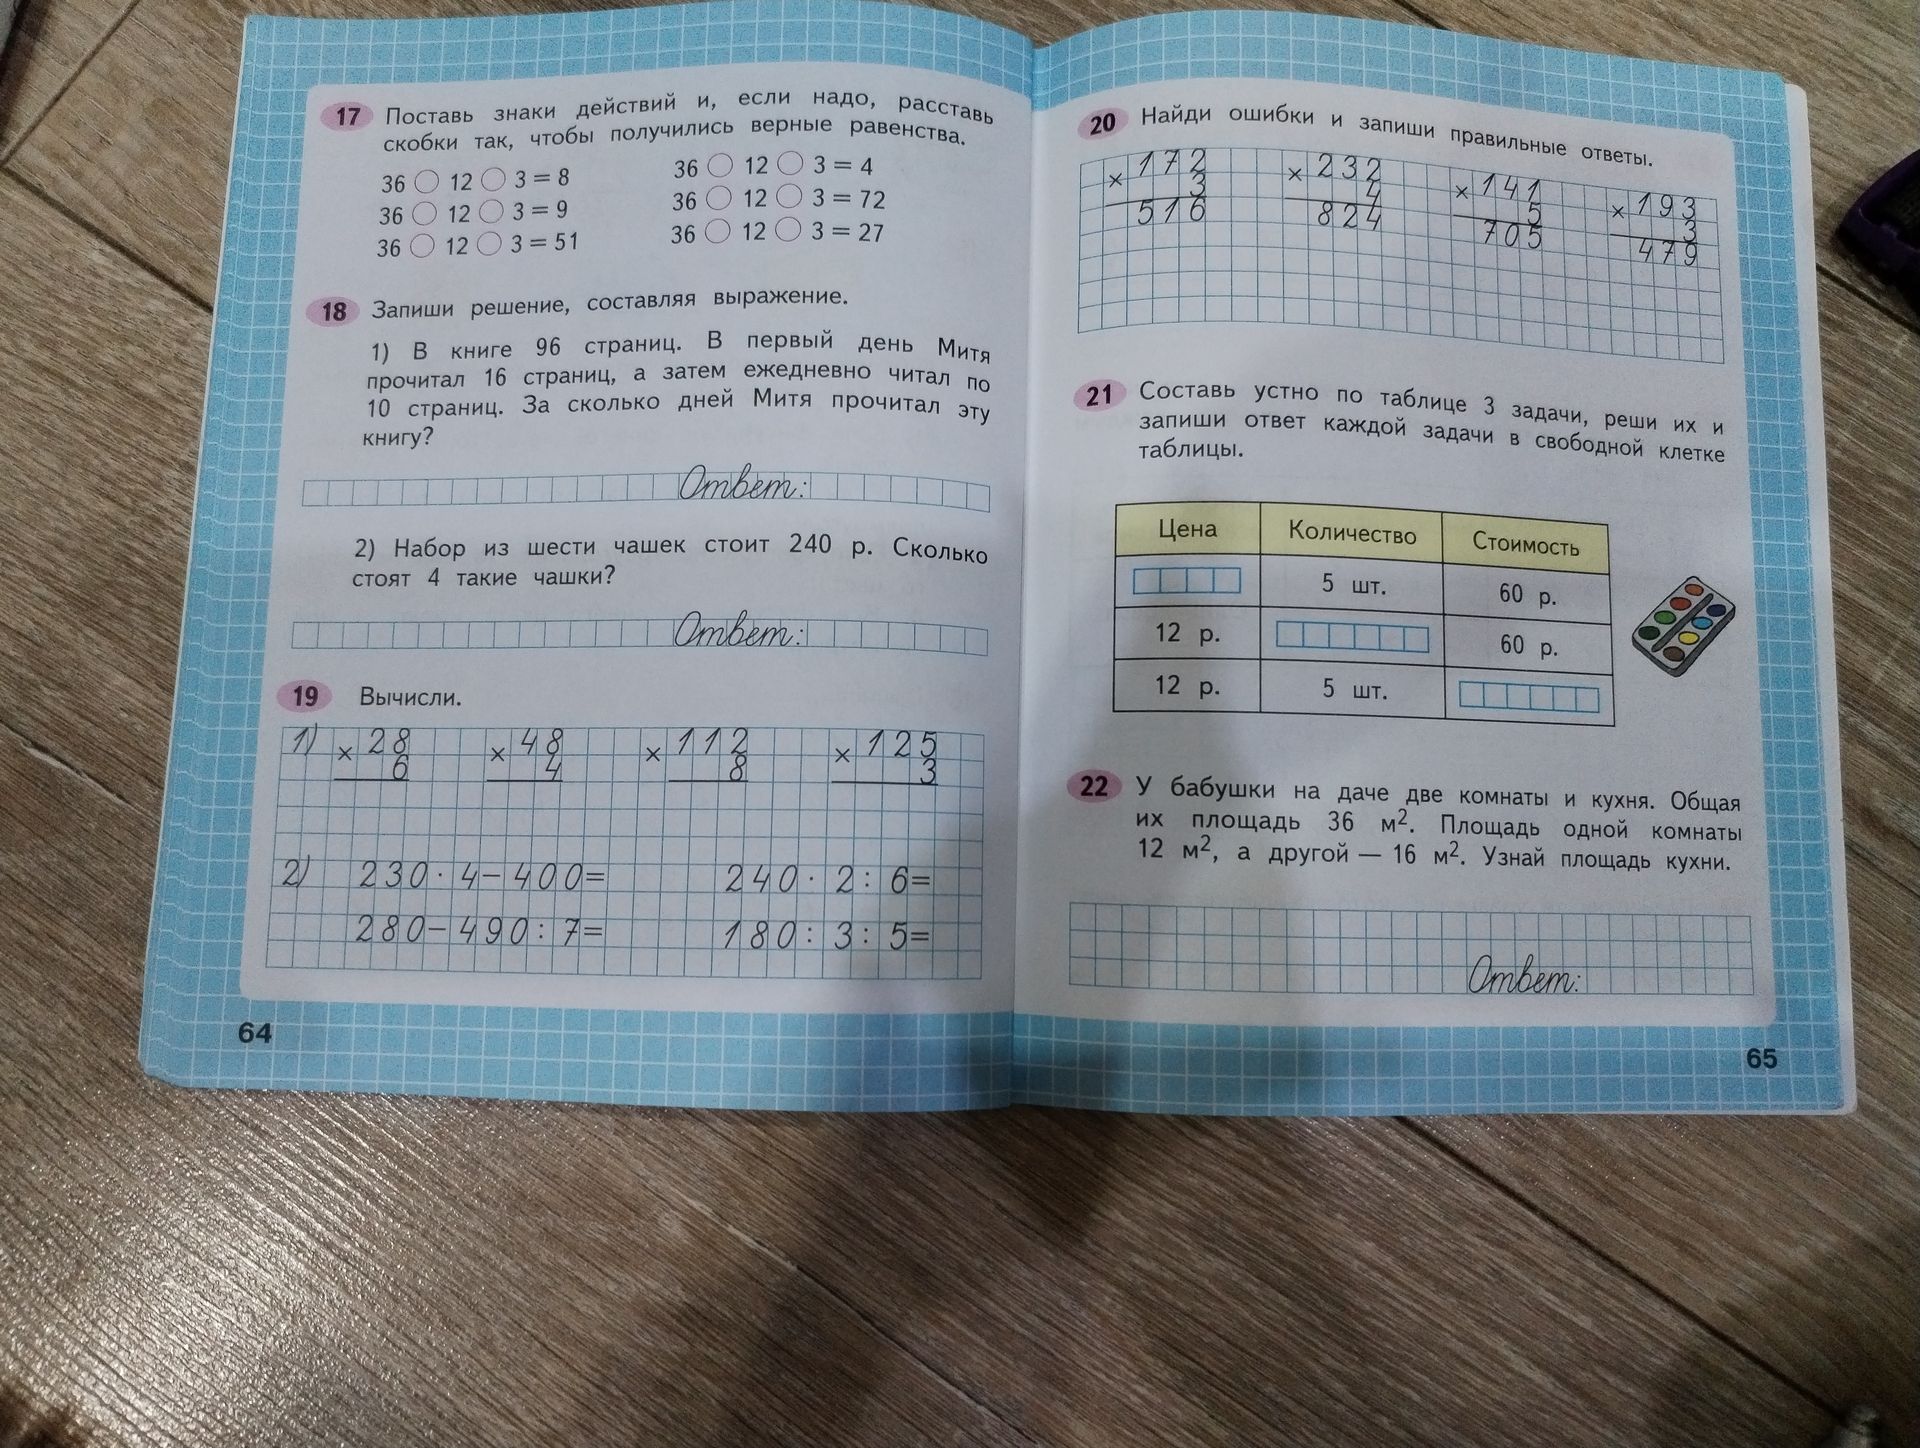 17 Поставь знаки действий и, если надо, расставь
скобки так, чтобы получились верные равенства.
36 ○ 12 ○ 3 = 8
36 ○ 12 ○ 3 = 9
36 ○ 12 ○ 3 = 51
36 ○ 12 ○ 3 = 4
36 ○ 12 ○ 3 = 72
36 ○ 12 ○ 3 = 27
18 Запиши решение, составляя выражение.
1) В книге 96 страниц. В первый день Митя
прочитал 16 страниц, а затем ежедневно читал по
10 страниц. За сколько дней Митя прочитал эту
книгу?
Ответ:
2) Набор из шести чашек стоит 240 р. Сколько
стоят 4 такие чашки?
Ответ:
19 Вычисли.
1) × 28 × 48 × 112 × 125
6 4 8 3
2) 230 · 4 − 400 = 240 · 2 : 6 =
280 − 490 : 7 = 180 : 3 : 5 =
64
20 Найди ошибки и запиши правильные ответы.
× 172 × 232 × 141 × 193
3 4 5 3
516 824 705 479
21 Составь устно по таблице 3 задачи, реши их и
запиши ответ каждой задачи в свободной клетке
таблицы.
Цена Количество Стоимость
5 шт. 60 р.
12 р. 60 р.
12 р. 5 шт.
22 У бабушки на даче две комнаты и кухня. Общая
их площадь 36 м². Площадь одной комнаты
12 м², а другой — 16 м². Узнай площадь кухни.
Ответ:
65